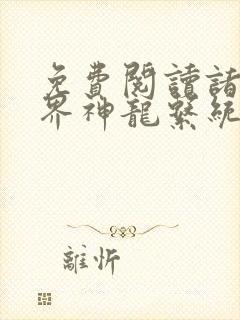 免費閱讀諸
界神龍繫統
離忻